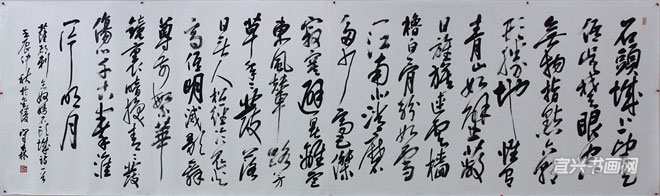 石頭城上望天
低吳楚眼空
無物指點六朝
形勝地惟有
青山如壁蔽
日旌旗連雲檣
櫓白骨紛如雪
一江南北消磨
多少豪傑
寂寞避暑離宮
東風輦路芳
草年年發落
日無人松徑冷鬼火
高低明滅歌舞
尊前繁華
鏡裏暗換青髮
傷心千古秦淮
一片明月
薩都剌念奴嬌石頭城詩一首
壬辰仲秋於
宜兴书画网